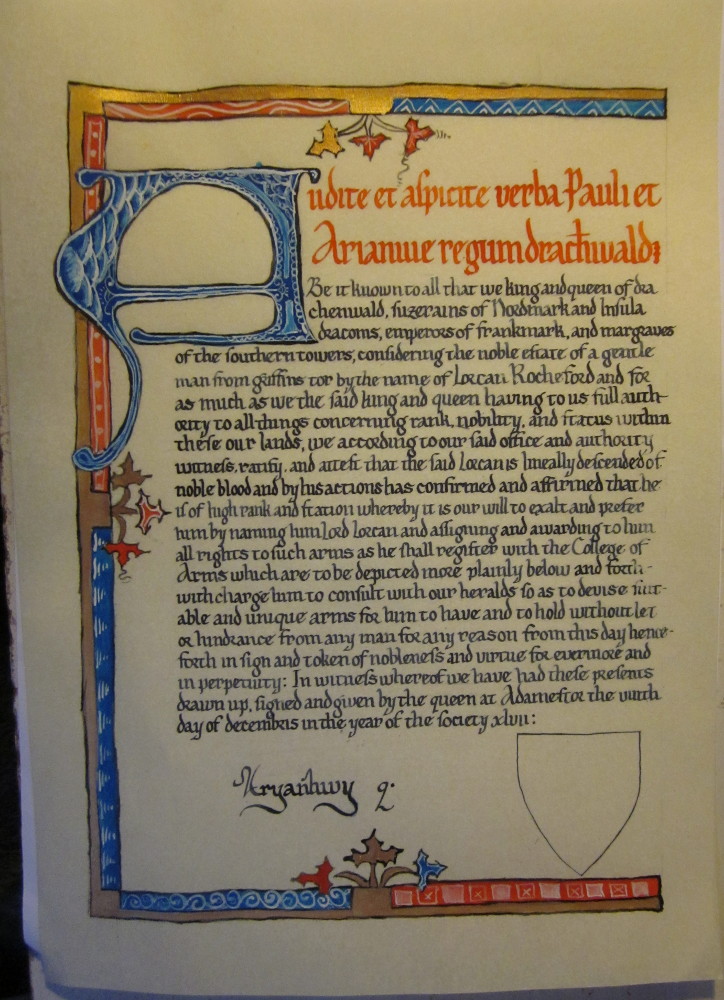 Audite et aspicite verba Pauli et
Arianwe regum drachwald
Be it known to all that we king and queen of dra
chenwald, suzerains of Nordmark and Insula
dracoms, emperors of frankmark, and margraves
of the southern towers, considering the noble estate of a gentle
man from griffins tor by the name of Lorcan Rocheford and for
as much as we the said king and queen having to us full auth-
ority to all things concerning rank, nobility, and status within
these our lands, we according to our said office and authority
witness, ratify, and attest that the said Lorcan is lineally descended of
noble blood and by his actions has confirmed and affirmed that he
is of high rank and station whereby it is our will to exalt and prefer
him by naming him Lord Lorcan and assigning and awarding to him
all rights to such arms as he shall register with the College of
Arms which are to be depicted more plainly below and forth-
with charge him to consult with our heralds so as to devise suit-
able and unique arms for him to have and to hold without let
or hindrance from any man for any reason from this day hence-
forth in sign and token of nobleness and virtue for evermore and
in perpetuity: In witness whereof we have had these presents
drawn up, signed and given by the queen at Adamestor the viiith
day of decembris in the year of the society xlvii:
Aryanhwy q.